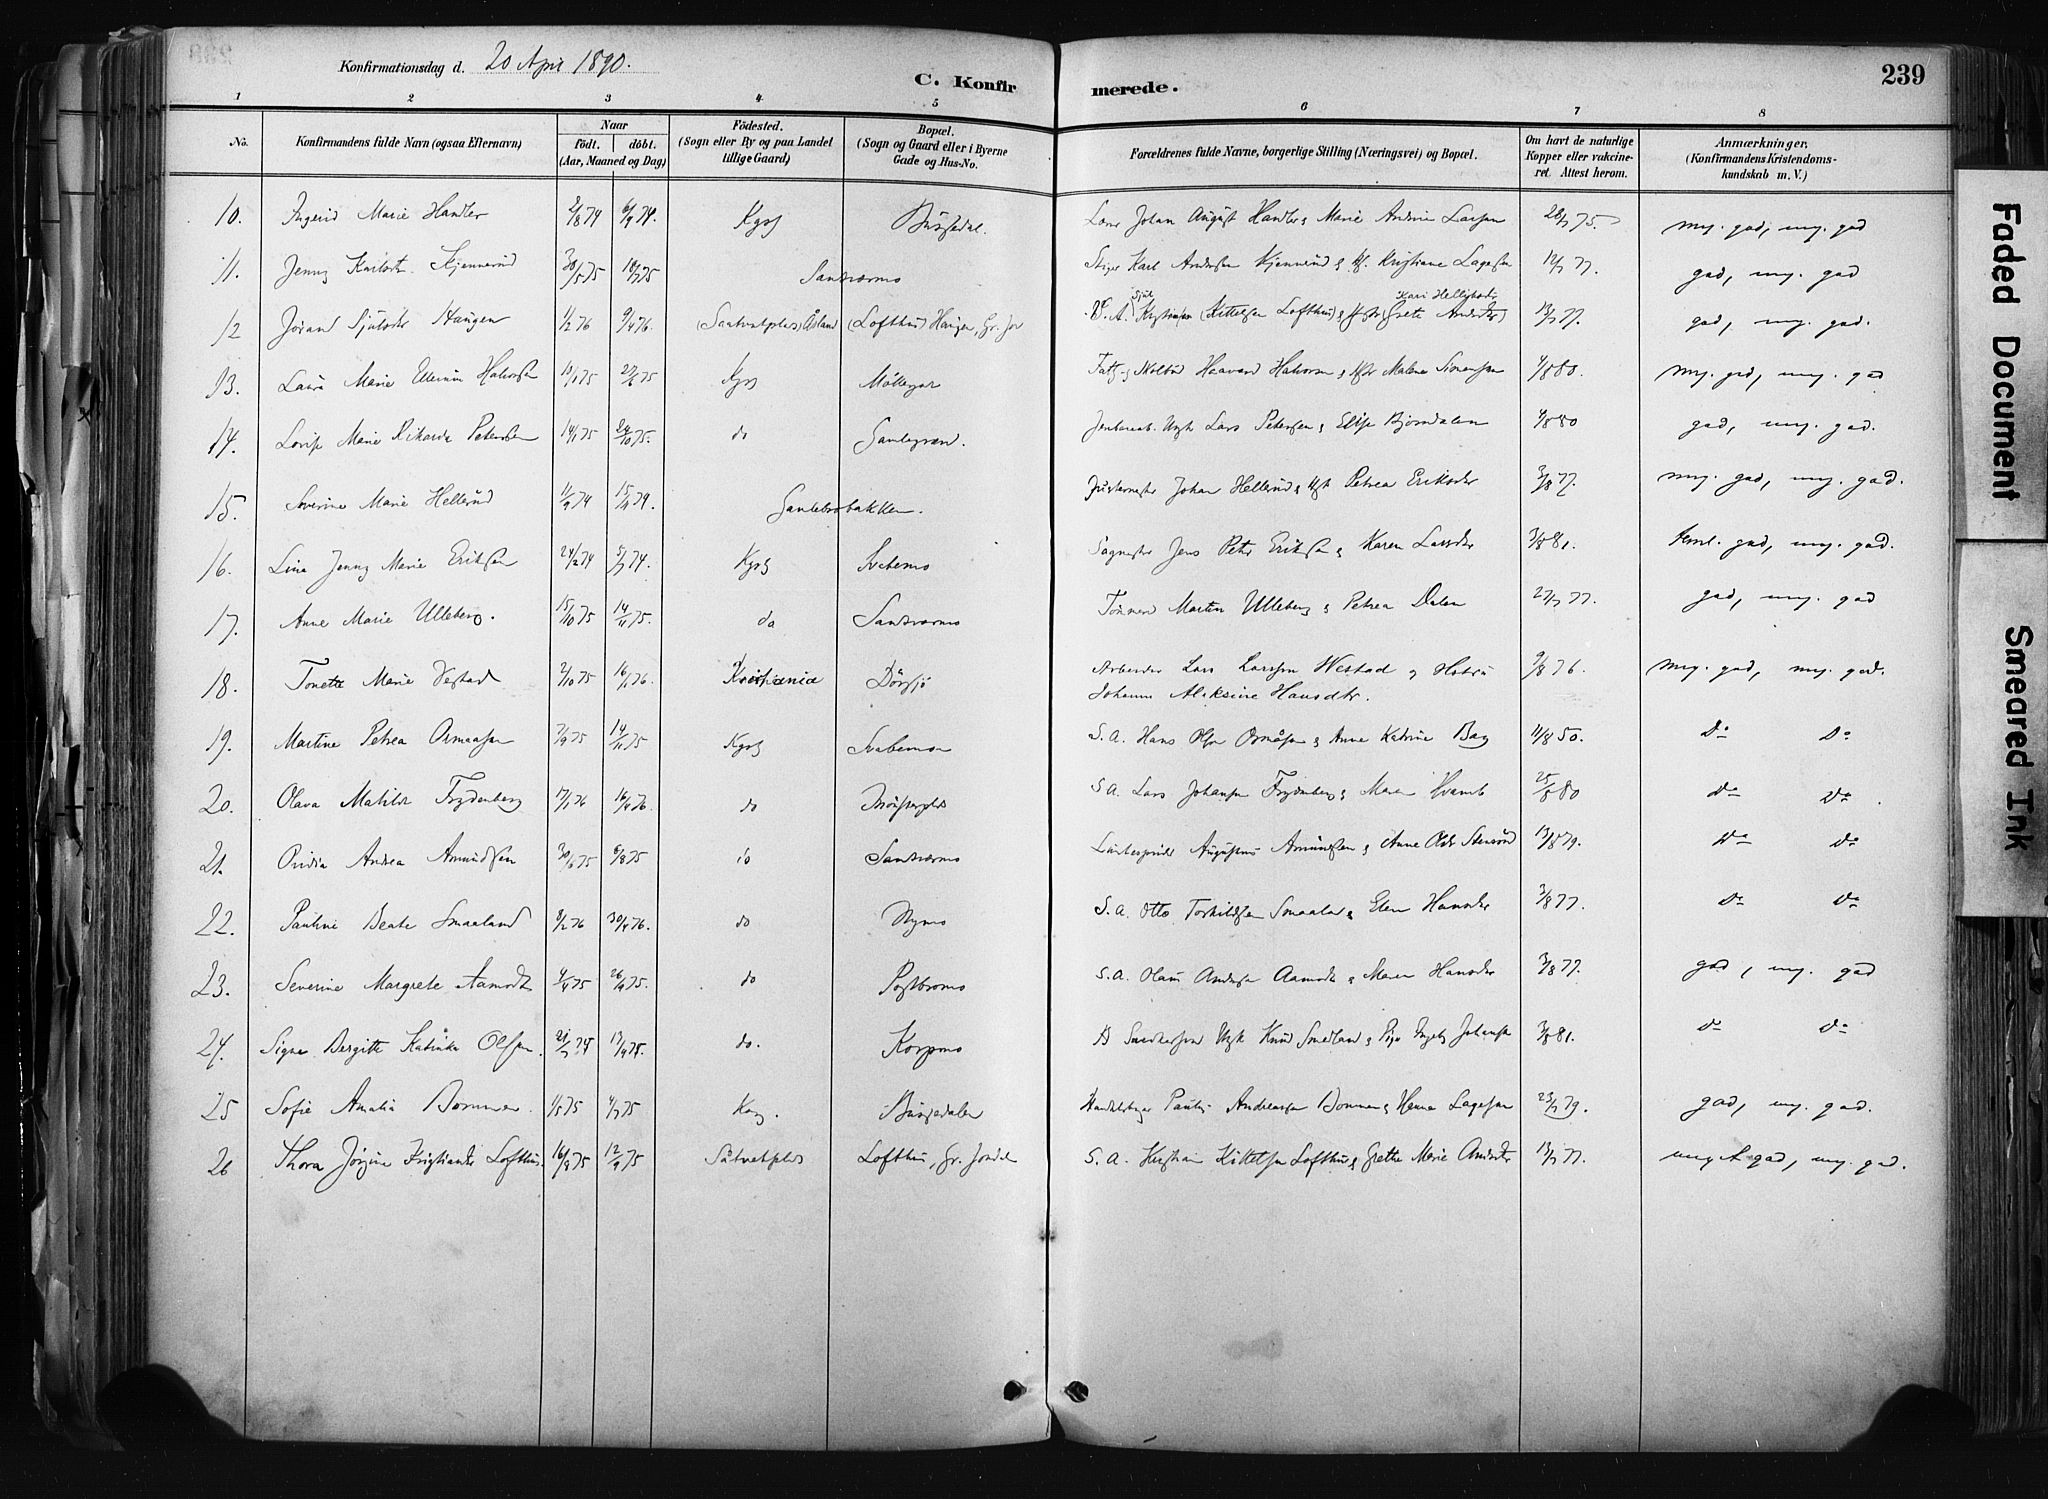 Konfirmationsdag d. 20 April 1890.
C. Konfirmerede.
239
1 2 3 4 5 6 7 8
No. Konfirmandens fulde Navn (ogsaa Efternavn) Naar födt. döbt. (Aar, Maaned og Dag) Födested. (Sogn eller By og paa Landet tillige Gaard) Bopæl. (Sogn og Gaard eller i Byerne Gade og Hus-No. Forældrenes fulde Navne, borgerlige Stilling (Næringsvei) og Bopæl. Om havt de naturlige Kopper eller vakcineret. Attest herom. Anmærkninger. (Konfirmandens Kristendomskundskab m. V.)
10. Ingerid Marie Handler 2/8 74 6/9 74. Kgsb Johan August Handler & Marie Andrine Larsen 28/7 75. mg. god, mg. god
11. Jenny Karlsdtr. Kjennerud 30/5 75 18/7 75 Sandsværmo Karl Andersen Kjennerud & H. Kristiane Lagesen 12/7 77. god, mg. god
12 Jöran Sjulsdtr Haugen 1/2 76 9/4 76. (Saatvetpleds) Åsland (Lofthus) Haugen, Gr. Jo Sjul Kristiansen (Kittelsen Lofthus) & Kari Helljesdr (Grete Andersdtr) 13/7 77. god, mg. god.
13. Laura Marie Ellerine Halvorsen 10/1 75 27/6 75 Kgsb Möllegar Haavard Halvorsen & Malene Simensen 4/8 80. mg. god, mg. god
14. Lovise Marie Rikarda Petersen 14/1 75 24/10 75. do Gamlegrend. Lars Petersen & Elise Bjørndalen 4/8 80 god, mg. god.
15. Severine Marie Hellerud 11/9 74 15/11 74. Gamlebrobakken. Johan Hellerud & Petrea Eriksdtr 3/8 77. mg. god, mg. god.
16. Lina Jenny Marie Eriksen 24/2 74 5/7 74. Kgsb Svebemo Sagmester Jens Peter Eriksen & Karen Larsdtr 3/8 81. teml. god, mg. god.
17. Anne Marie Ulleberg. 15/10 75 14/11 75. do Sandsværmo Martin Ulleberg & Petrea Dalen 27/7 77. god, mg. god
18. Tonette Marie Vestad 2/10 75 16/1 76. Kristiania Dørsjö Arbeider Lars Larssen Westad og Hstru Johanne Aleksine Hansdtr. 9/8 76. mg. god, mg. god.
19. Martine Petrea Ormaasen 7/9 75 14/11 75 Kgsb Svabemo S. A. Hans Ormåsen & Anne Katrine Bag 11/8 80. Do Do
20. Olava Matilde Frydenberg 17/1 76 16/4 76. do S. A. Lars Johansen Frydenberg & Maren 25/8 80 Do Do.
21. Andrea Amundsen 30/6 75 8/8 75 do Sandsværmo Augustus Amundsen & Anne Olsdr Stensrud 13/8 79. Do Do
22. Pauline Beate Smaaland 8/2 76 30/4 76. do Nymo S. A. Otto Torkildsen Smaaland & Elen Hansdtr 3/8 77. Do Do
23. Severine Margrete Aamodt 4/4 75 26/9 75. do Postbromo S. A. Olaus Andersen Aamodt & Maren Hansdtr 3/8 77. god, mg. god
24. Signe Bergitte Katinka Olsen. 21/7 75 13/9 75. do. Korpmo Knud Smedland & Pige Ingeborg Johansen 3/8 81. Do Do
25 Sofie Amalia Bommen 1/5 75 4/7 75 Kgsb. Bussedalen Paulus Andreassen Bommen & Hanna Lagesen 23/7 79. god, mg. god.
26 Thora Jörgine Kristiansdtr Lofthus. 16/8 75 12/9 75 Såtvetpleds Lofthus, Gr. Jondal S. A. Kristian Kittelsen Lofthus & Grethe Marie Andersdtr 13/7 77. meget god, mg. god.
Faded Document
Smeared Ink